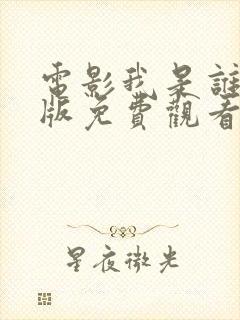 電影我是誰
版免費觀看
星夜微光